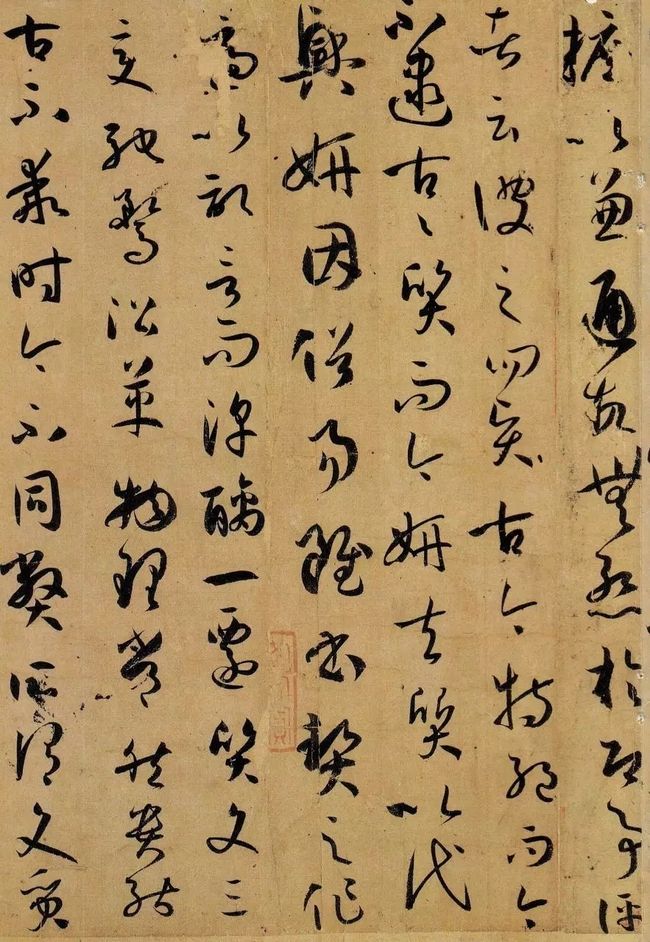 擅以兼通故無慙於即事評
者云彼之四賢古今特絕而今
不逮古〻質而今妍夫質以代
興妍因俗易雖書契之作
適以記言而淳醨一遷質文三
變馳鶩沿革物理常然貴能
古不乖時今不同弊所謂文質